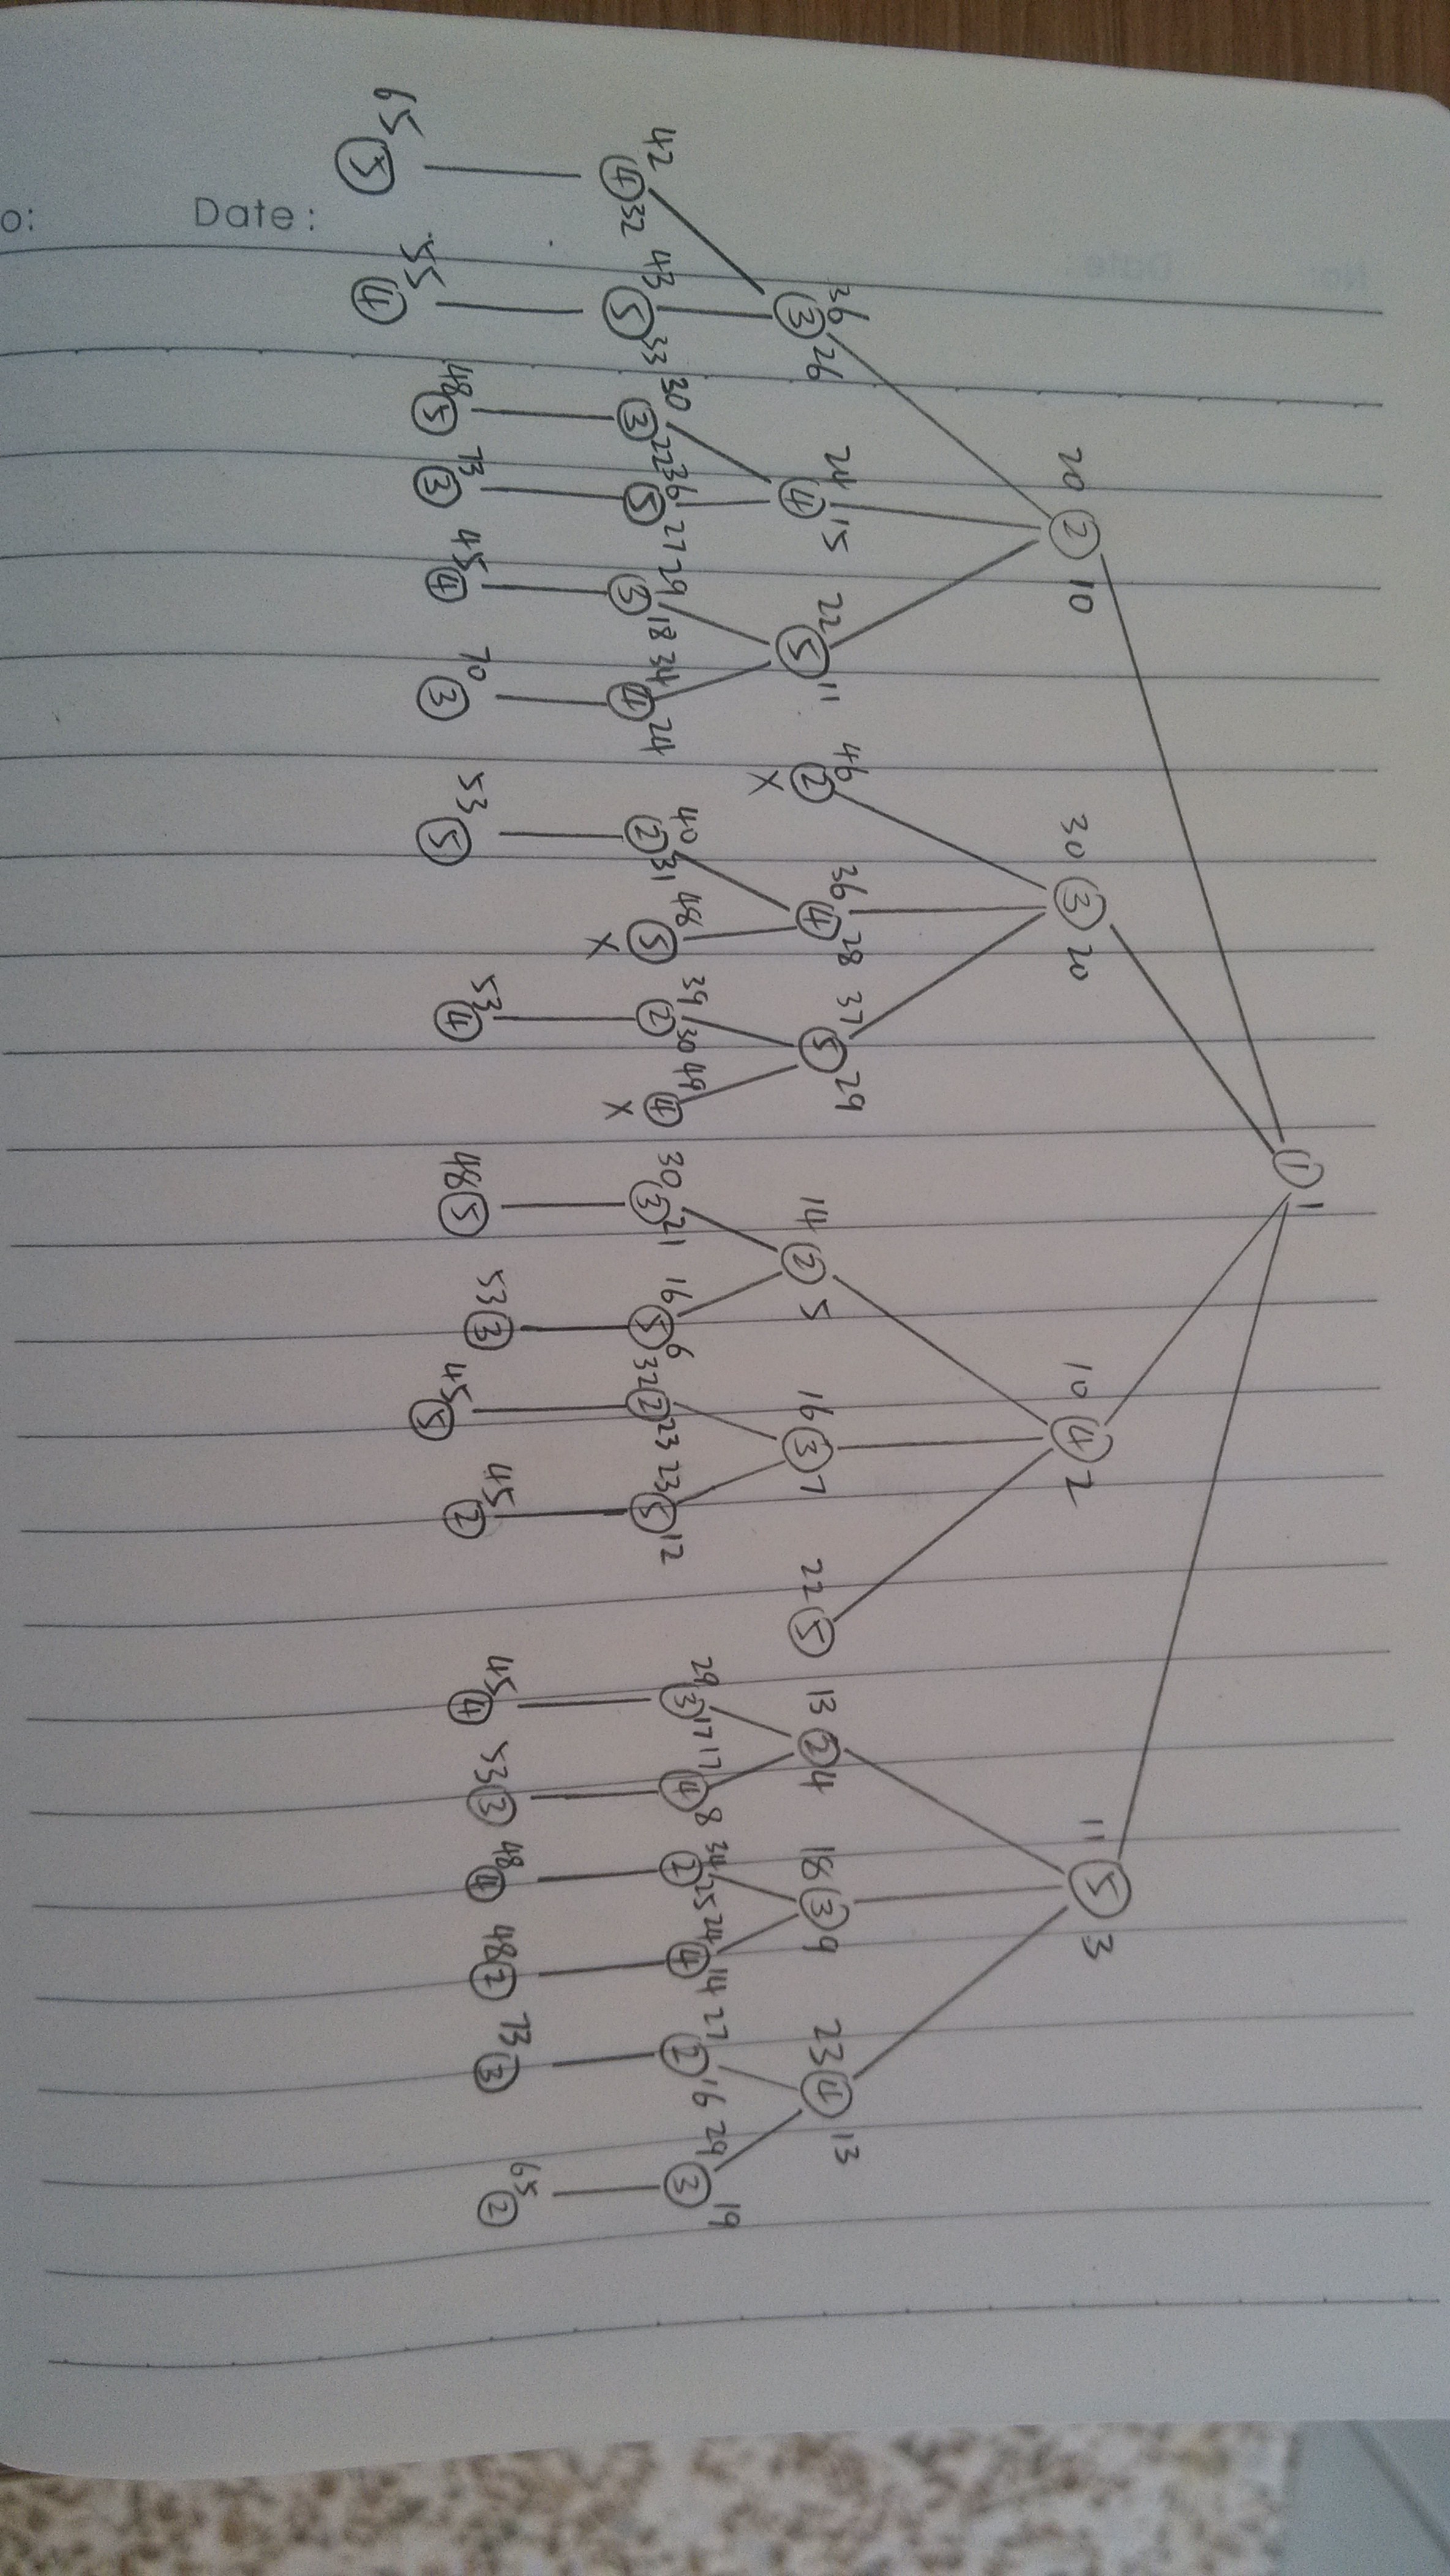 ① 1
20 ② 10 30 ③ 20 10 ④ 2 11 ⑤ 3
36 ③ 26 24 ④ 15 22 ⑤ 11 46 ② 36 ④ 28 37 ⑤ 29 14 ② 5 16 ③ 7 22 ⑤ 13 ② 4 18 ③ 9 23 ④ 13
X
42 ④ 32 43 ⑤ 33 30 ③ 22 36 ⑤ 27 29 ③ 18 34 ④ 24 40 ② 31 48 ⑤ 39 ② 30 49 ④ 30 ③ 21 16 ⑤ 6 32 ② 23 23 ⑤ 12 29 ③ 17 17 ④ 8 34 ② 25 24 ④ 14 27 ② 16 29 ③ 19
X X
65 ⑤ 55 ④ 48 ⑤ 73 ③ 45 ④ 70 ③ 53 ⑤ 53 ④ 48 ⑤ 53 ③ 45 ⑤ 45 ② 45 ④ 53 ③ 48 ④ 48 ② 73 ③ 65 ②
o: Date: